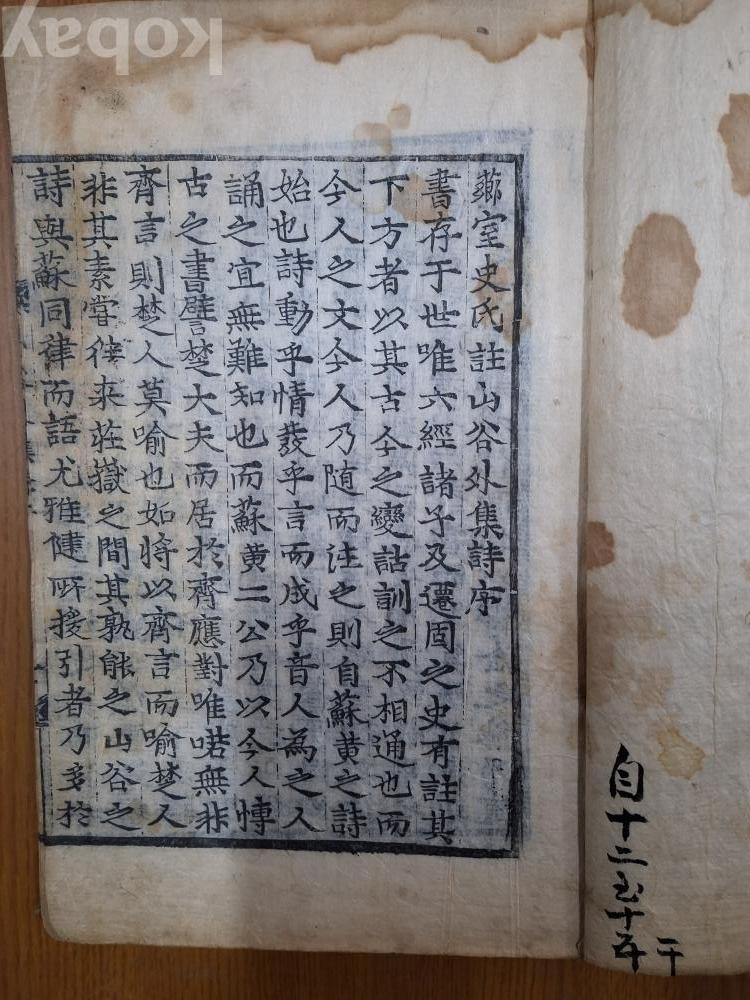 薌室史氏註山谷外集詩序
書存于世唯六經諸子及遷固之史有註其
下方者以其古今之變詁訓之不相通也而
今人之文今人乃随而注之則自蘇黄之詩
始也詩動乎情發乎言而成乎音人為之人
誦之宜無難知也而蘇黄二公乃以今人博
古之書譬楚大夫而居於齊應對唯喏無非
齊言則楚人莫喻也如將以齊言而喻楚人
非其素甞徃来荘嶽之間其孰能之山谷之
詩與蘇同律而語尤雅健所援引者乃多於
自十二至十五
kobay